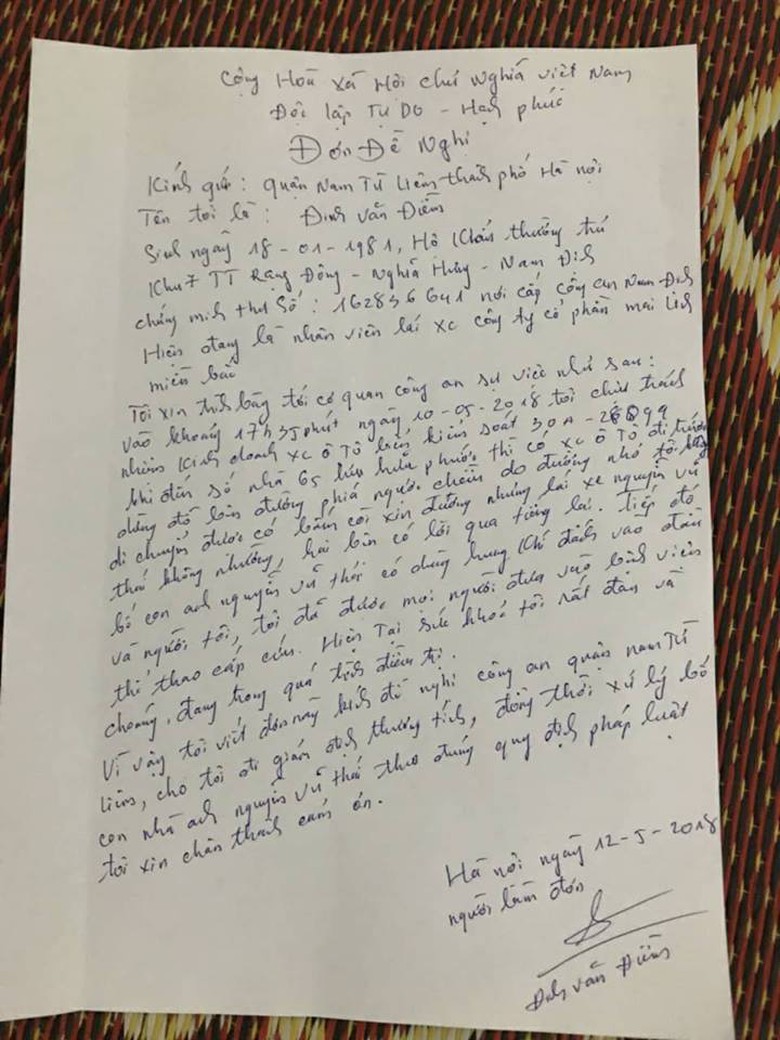 Cộng Hoà xã Hội chủ Nghĩa việt Nam
Độc lập Tự Do - Hạnh phúc
Đơn Đề Nghị
Kính gửi : quận Nam Từ Liêm thành phố Hà nội
Tên tôi là : Đinh văn Điềm
Sinh ngày 18 - 01 - 1981, Hộ Khẩu thường trú
Khu 7 TT Rạng Đông - Nghĩa Hưng - Nam Định
chứng minh thư Số : 162836641 nơi cấp công an Nam Định
Hiện đang là nhân viên lái xe công ty cổ phần mai linh
miền bắc
Tôi xin trình bày tới cơ quan công an sự việc như sau :
vào khoảng 17h35 phút ngày 10-05-2018 tôi chịu trách
nhiệm Kinh doanh xe ô Tô biển kiểm soát 30A -
khi đến số nhà 65 lưu hữu phước thì có xe ô Tô đi trước
dừng đỗ bên đường phía ngược chiều do đường nhỏ tôi không
di chuyển được có bấm còi xin đường nhưng lái xe nguyễn vũ
thái không nhường, hai bên có lời qua tiếng lại. tiếp đó
bố con anh nguyễn vũ thái có dùng hung Khí đánh vào đầu
và người tôi, tôi đã được mọi người đưa vào bệnh viện
thể thao cấp cứu. Hiện Tại sức khoẻ tôi rất đau và
choáng, đang trong quá trình điều trị.
Vì vậy tôi viết đơn này kính đề nghị công an quận nam Từ
liêm, cho tôi đi giám định thương tích, đồng thời xử lý bố
con nhà anh nguyễn vũ thái theo đúng quy định pháp luật
tôi xin chân thành cám ơn.
Hà nội ngày 12-5-2018
người làm đơn
Đinh văn Điềm